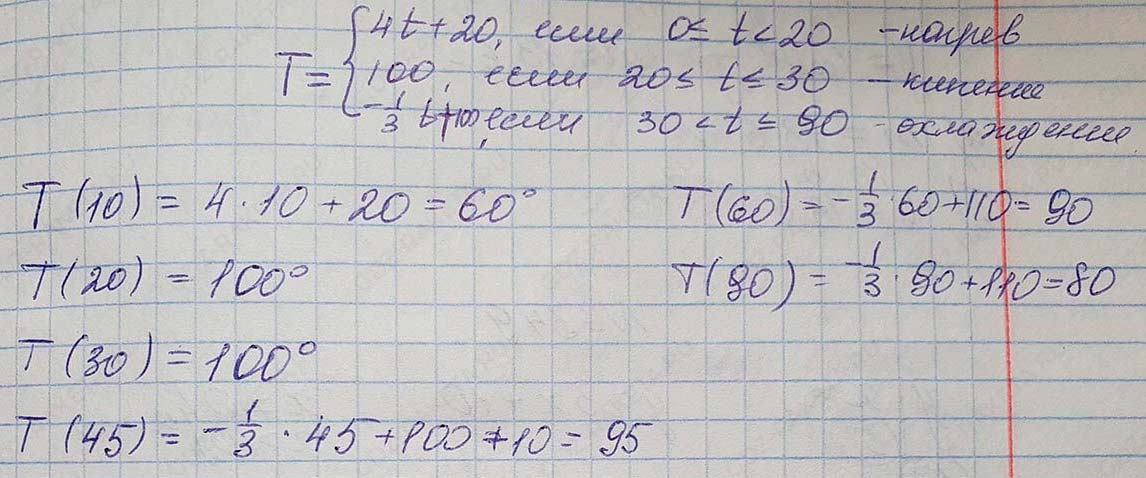 T = { 4t+20, если 0≤ t<20 - нагрев
100, если 20≤ t≤30 - кипение
-1/3 t+100, если 30<t≤90 - охлаждение.
T(10) = 4·10+20=60° T(60)=-1/3·60+110=90
T(20) = 100° T(90)=-1/3·90+110=80
T(30) = 100°
T(45) = -1/3·45+100+10=95